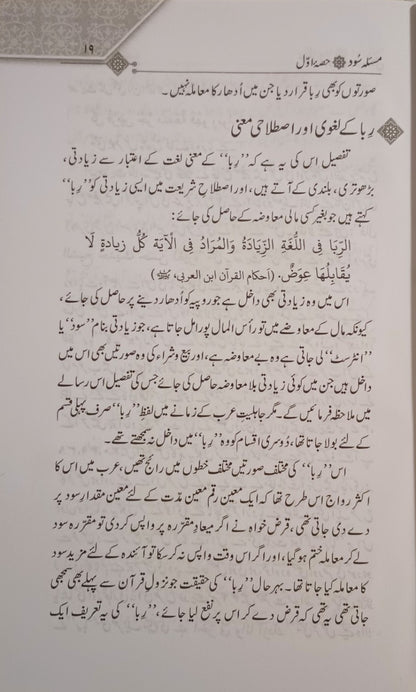 مسئلہ سُود ۞ حصۂ اوّل
۱۹
صورتوں کو بھی رِبا قرار دیا جن میں اُدھار کا معاملہ نہیں۔
رِبا کے لغوی اور اصطلاحی معنی
تفصیل اس کی یہ ہے کہ ’’رِبا‘‘ کے معنی لغت کے اعتبار سے زیادتی،
بڑھوتری، بلندی کے آتے ہیں، اور اصطلاحِ شریعت میں ایسی زیادتی کو ’’رِبا‘‘
کہتے ہیں جو بغیر کسی مالی معاوضہ کے حاصل کی جائے:
الرِّبَا فِی اللُّغَةِ الزِّیَادَةُ وَالْمُرَادُ فِی الْآیَةِ کُلُّ زِیادةٍ لَا
یُقَابِلُهَا عِوَضٌ. (احکام القرآن ابن العربی،
اس میں وہ زیادتی بھی داخل ہے جو روپیہ کو اُدھار دینے پر حاصل کی جائے،
کیونکہ مال کے معاوضے میں تو رأس المال پورا مل جاتا ہے، جو زیادتی بنام ’’سود‘‘ یا
’’انٹرسٹ‘‘ لی جاتی ہے وہ بے معاوضہ ہے، اور بیع و شراء کی وہ صورتیں بھی اس میں
داخل ہیں جن میں کوئی زیادتی بلا معاوضہ حاصل کی جائے جس کی تفصیل اس رسالے
میں ملاحظہ فرمائیں گے۔ مگر جاہلیتِ عرب کے زمانے میں لفظ ’’رِبا‘‘ صرف پہلی قسم
کے لئے بولا جاتا تھا، دُوسری اقسام کو وہ ’’رِبا‘‘ میں داخل نہ سمجھتے تھے۔
اس ’’رِبا‘‘ کی مختلف صورتیں مختلف خطوں میں رائج تھیں، عرب میں اس کا
اکثر رواج اس طرح تھا کہ ایک معین رقم معین مدّت کے لئے معین مقدار سود پر
دے دی جاتی تھی، قرض خواہ نے اگر میعادِ مقرّرہ پر واپس کردی تو مقرّرہ سود
لے کر معاملہ ختم ہو گیا، اور اگر اس وقت واپس نہ کر سکا تو آئندہ کے لئے مزید سود
کا معاملہ کیا جاتا تھا۔ بہرحال ’’رِبا‘‘ کی حقیقت جو نزولِ قرآن سے پہلے بھی سمجھی
جاتی تھی یہ تھی کہ قرض دے کر اس پر نفع لیا جائے، ’’رِبا‘‘ کی یہ تعریف ایک